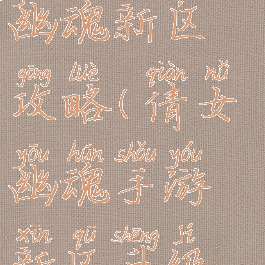 幽魂新区
gōng lüè qiàn nǚ
攻略(倩女
yōu hún shǒu yóu
幽魂手游
xīn qū shēng jí
新区升级